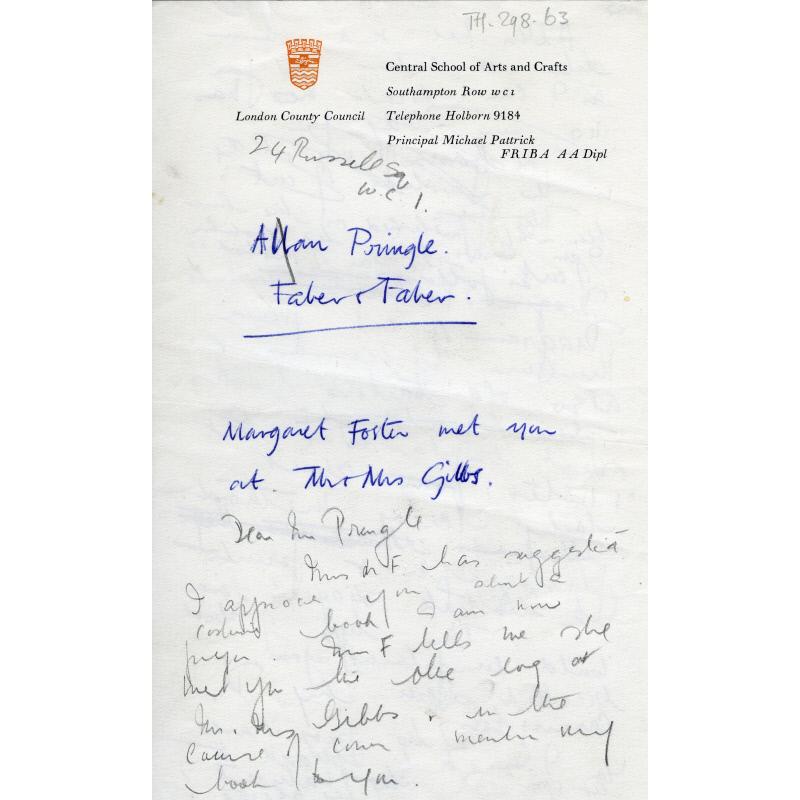 TH-298-63
Central School of Arts and Crafts
Southampton Row wc1
London County Council Telephone Holborn 9184
Principal Michael Pattrick
FRIBA AA Dipl
24 Russell Sq
W.C.1.
Allan Pringle.
Faber & Faber.
Margaret Foster met you
at Mr & Mrs Gibbs.
Dear Mr Pringle
Mrs F. has suggested
I approce you about a
costume book I am now
Mrs F tells me she
met you the other day at
Mr. Mrs Gibbs & in the
course of conver mention my
book to you.